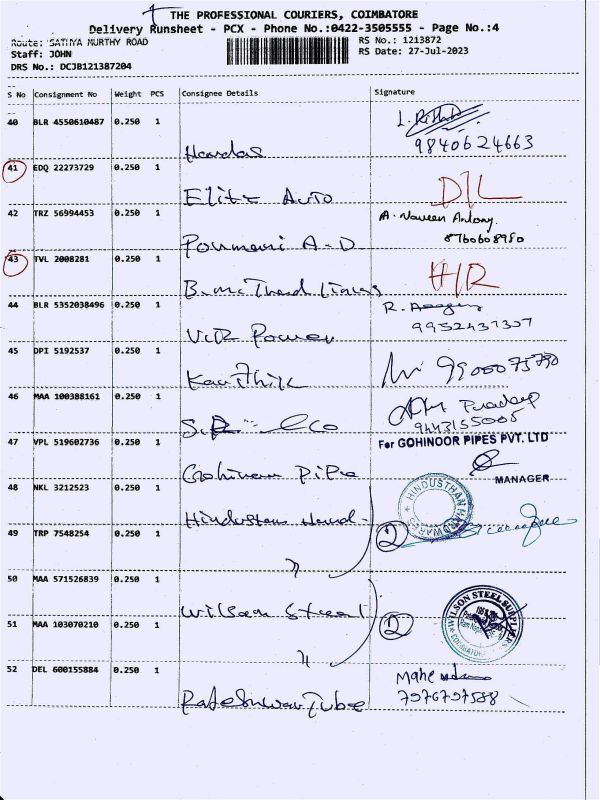 THE PROFESSIONAL COURIERS, COIMBATORE
Delivery Runsheet - PCX - Phone No.:0422-3505555 - Page No.:4
Route: SATHYA MURTHY ROAD
RS No.: 1213872
Staff: JOHN
RS Date: 27-Jul-2023
DRS No.: DCJB121387204
S No Consignment No Weight PCS Consignee Details Signature
40 BLR 4550610487 0.250 1
9840624663
41 EDQ 22273729 0.250 1
Elite Auto
D/L
42 TRZ 56994453 0.250 1
A. Naveen Antony.
8760608980
43 TVL 2008281 0.250 1
H/R
44 BLR 5352038496 0.250 1
R.
9952437337
45 DPI 5192537 0.250 1
46 MAA 100388161 0.250 1
Pradeep
9443155005
47 VPL 519602736 0.250 1
For GOHINOOR PIPES PVT. LTD
Gohinoor Pipe
MANAGER
48 NKL 3212523 0.250 1
HINDUSTHAN HARDWARES
Hindustan Hard-
2
49 TRP 7548254 0.250 1
"
50 MAA 571526839 0.250 1
WILSON STEEL SUPPLIERS
Wilson Steel
2
51 MAA 103070210 0.250 1
"
52 DEL 600155884 0.250 1
Rajeshwar Tube